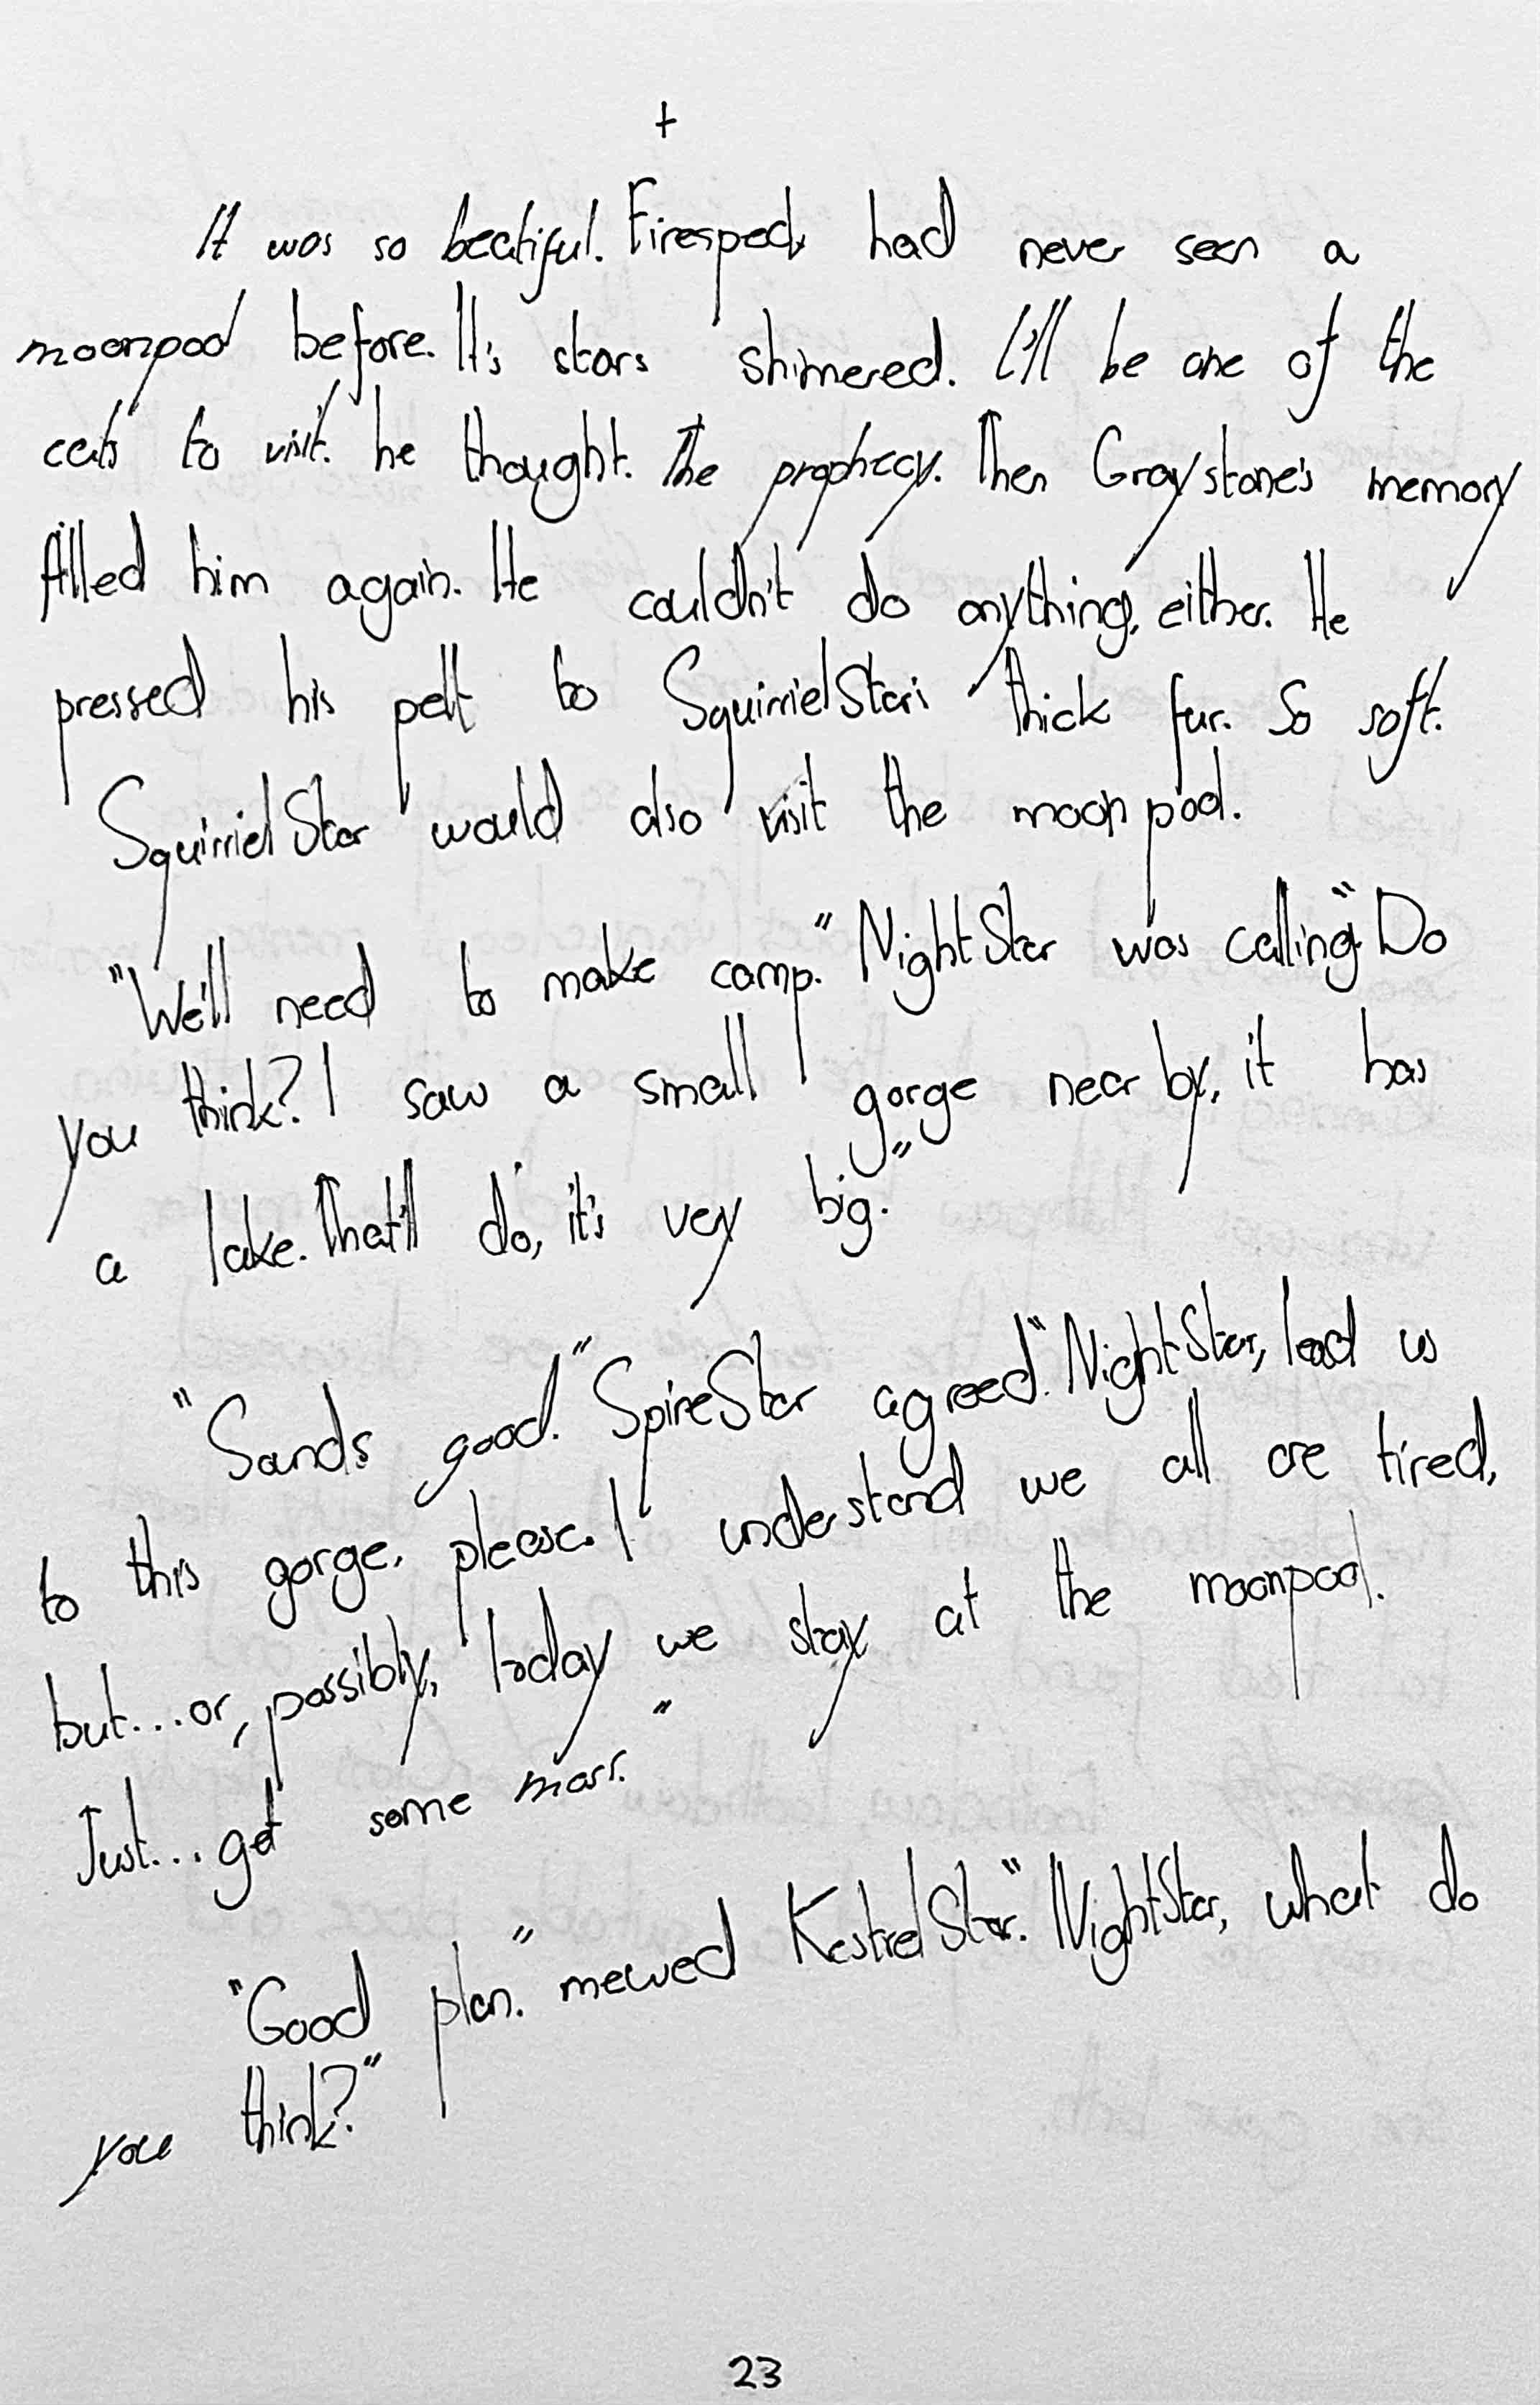 +
It was so beatiful. Firespeck had never seen a
moonpool before. It's stars shimered. I'll be one of the
cats to visit. he thought. The prophecy. Then Graystone's memory
filled him again. He couldn't do anything, either. He
pressed his pelt to SquirrielStar's thick fur. So soft.
SquirrielStar would also visit the moonpool.
"We'll need to make camp." NightStar was calling. "Do
you think? I saw a small gorge near by, it has
a lake. That'll do, it's very big."
"Sands good." SpireStar agreed. "NightStar, lead us
to this gorge, please. I understand we all are tired,
but...or, possibly, today we stay at the moonpool.
Just...get some moss."
"Good plan." mewed KestrelStar. "NightStar, what do
you think?"
23